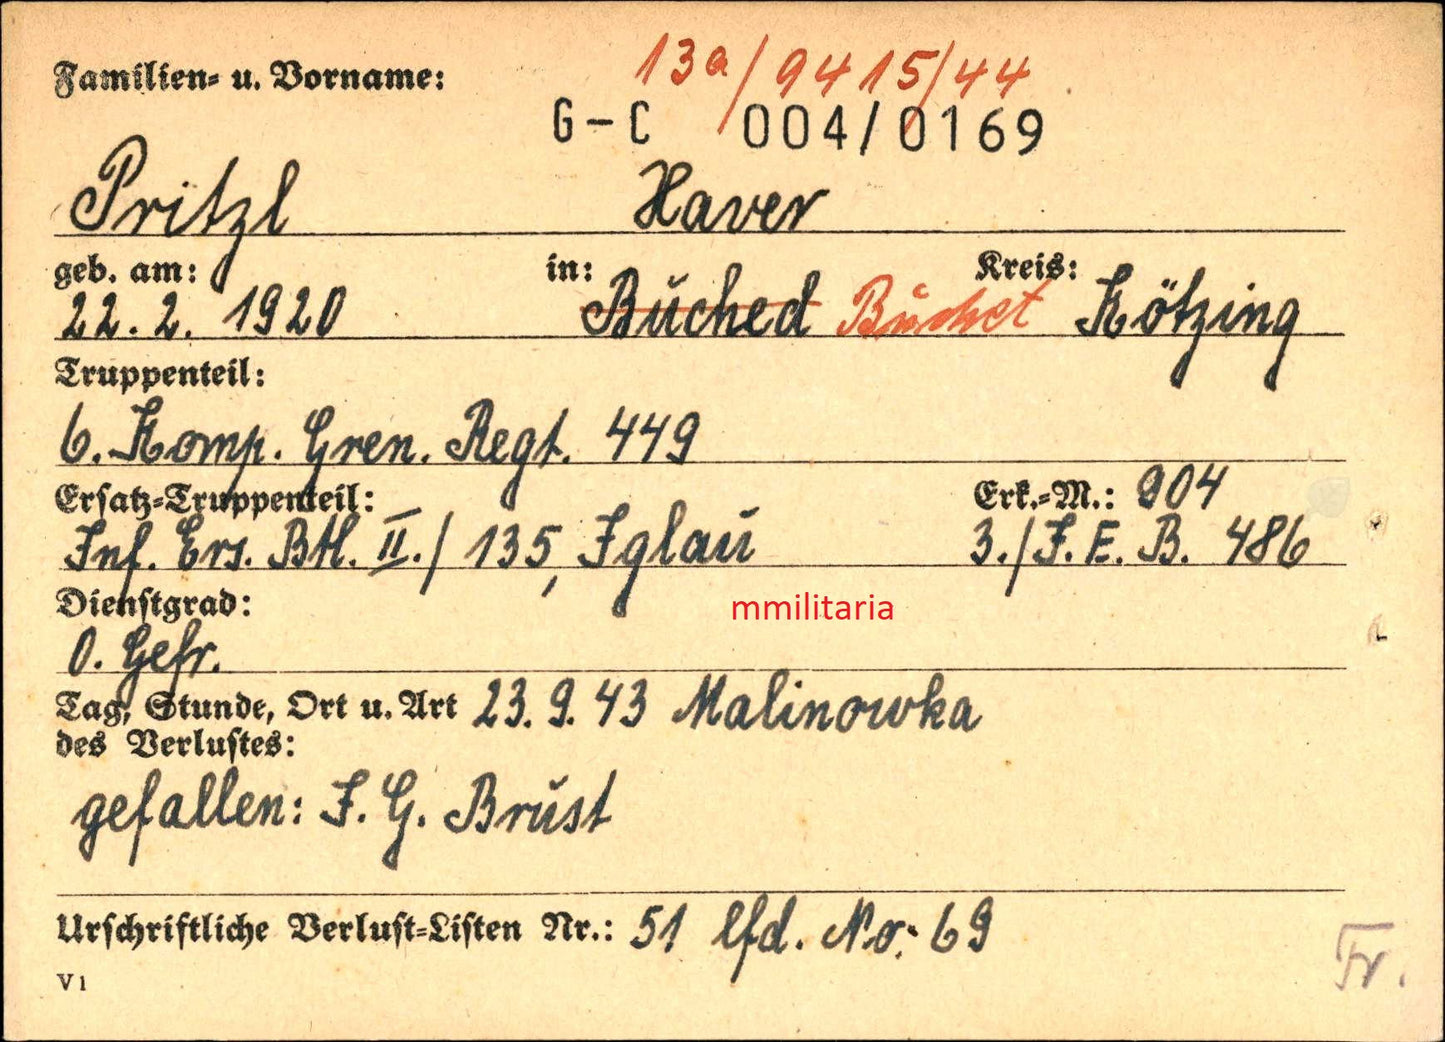 Familien- u. Vorname:
13a/9415/44
G-C 004/0169
Pritzl Xaver
geb. am: in: Kreis:
22. 2. 1920 Buched Buchet Kötzing
Truppenteil:
6. Komp. Gren. Regt. 449
Ersatz-Truppenteil: Erk.-M.: 904
Inf. Ers. Btl. II./135, Iglau 3./J.E.B. 486
Dienstgrad:
O. Gefr.
Tag, Stunde, Ort u. Art 23. 9. 43 Malinowka
des Verlustes:
gefallen: J. G. Brust
Urschriftliche Verlust-Listen Nr.: 51 lfd. No: 69
V 1
Fr.
mmilitaria